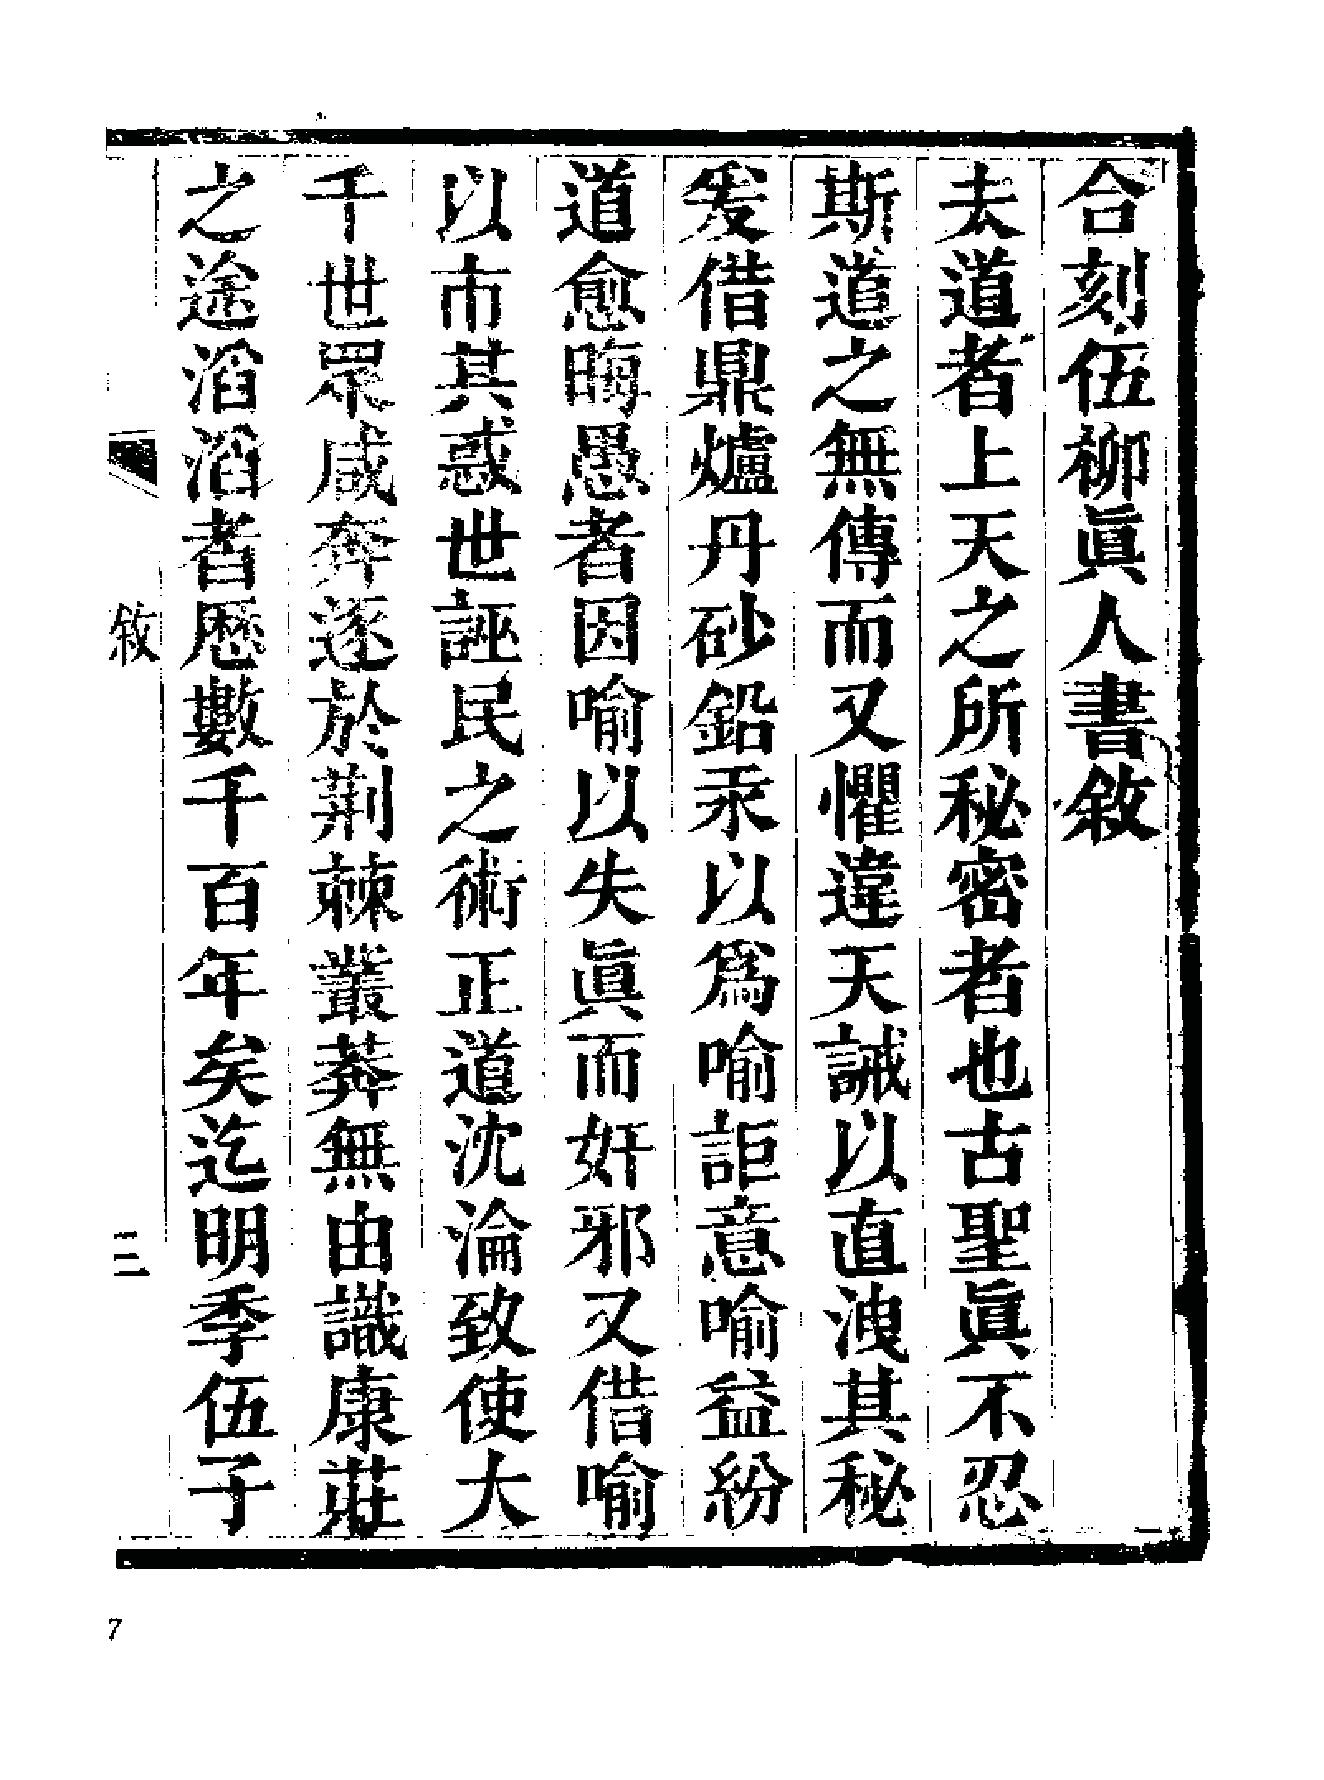 合刻伍柳眞人書敘
夫道者上天之所秘密者也古聖眞不忍
斯道之無傳而又懼違天誡以直洩其秘
爰借鼎爐丹砂鉛汞以爲喻詎意喻益紛
道愈晦愚者因喻以失眞而奸邪又借喻
以市其惑世誣民之術正道沈淪致使大
千世眾咸奔逐於荆棘叢莽無由識康莊
之途滔滔者歷數千百年矣迄明季伍子
敘
二
7